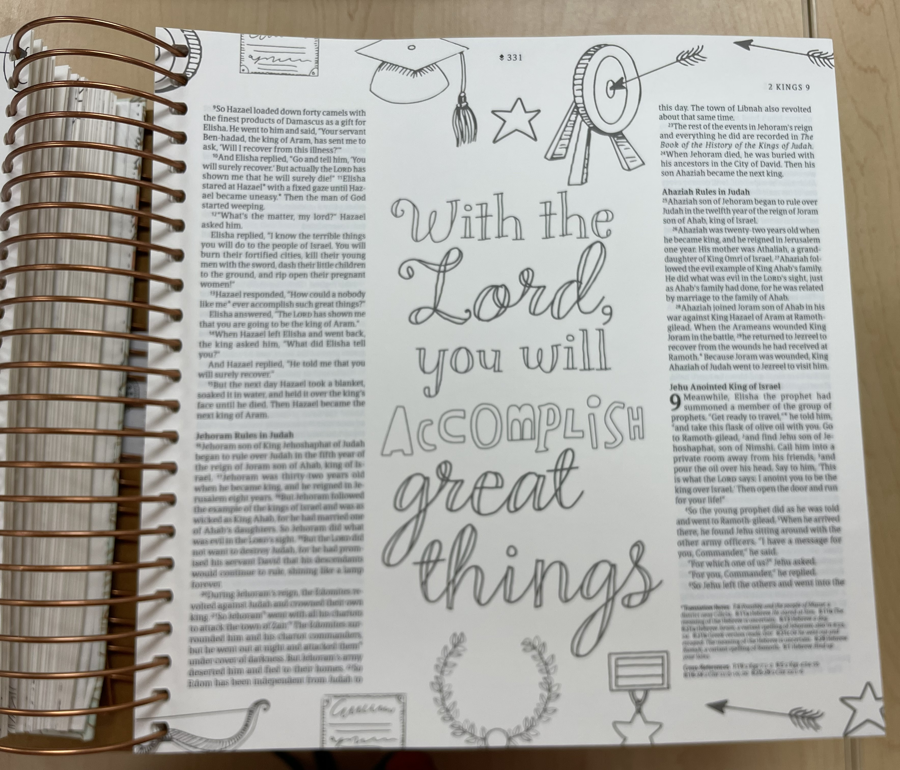 331
2 KINGS 9
⁹So Hazael loaded down forty camels with
the finest products of Damascus as a gift for
Elisha. He went to him and said, "Your servant
Ben-hadad, the king of Aram, has sent me to
ask, 'Will I recover from this illness?'"
¹⁰And Elisha replied, "Go and tell him, 'You
will surely recover.' But actually the LORD has
shown me that he will surely die!" ¹¹Elisha
stared at Hazael* with a fixed gaze until Haz-
ael became uneasy.* Then the man of God
started weeping.
¹²"What's the matter, my lord?" Hazael
asked him.
Elisha replied, "I know the terrible things
you will do to the people of Israel. You will
burn their fortified cities, kill their young
men with the sword, dash their little children
to the ground, and rip open their pregnant
women!"
¹³Hazael responded, "How could a nobody
like me* ever accomplish such great things?"
Elisha answered, "The LORD has shown me
that you are going to be the king of Aram."
¹⁴When Hazael left Elisha and went back,
the king asked him, "What did Elisha tell
you?"
And Hazael replied, "He told me that you
will surely recover."
¹⁵But the next day Hazael took a blanket,
soaked it in water, and held it over the king's
face until he died. Then Hazael became the
next king of Aram.
Jehoram Rules in Judah
¹⁶Jehoram son of King Jehoshaphat of Judah
began to rule over Judah in the fifth year of
the reign of Joram son of Ahab, king of Is-
rael. ¹⁷Jehoram was thirty-two years old
when he became king, and he reigned in Je-
rusalem eight years. ¹⁸But Jehoram followed
the example of the kings of Israel and was as
wicked as King Ahab, for he had married one
of Ahab's daughters. So Jehoram did what
was evil in the LORD's sight. ¹⁹But the LORD did
not want to destroy Judah, for he had prom-
ised his servant David that his descendants
would continue to rule, shining like a lamp
forever.
²⁰During Jehoram's reign, the Edomites re-
volted against Judah and crowned their own
king. ²¹So Jehoram* went with all his chariots
to attack the town of Zair.* The Edomites sur-
rounded him and his chariot commanders,
but he went out at night and attacked them*
under cover of darkness. But Jehoram's army
deserted him and fled to their homes. ²²So
Edom has been independent from Judah to
With the
Lord,
you will
ACCOMPLiSH
great
things
this day. The town of Libnah also revolted
about that same time.
²³The rest of the events in Jehoram's reign
and everything he did are recorded in The
Book of the History of the Kings of Judah.
²⁴When Jehoram died, he was buried with
his ancestors in the City of David. Then his
son Ahaziah became the next king.
Ahaziah Rules in Judah
²⁵Ahaziah son of Jehoram began to rule over
Judah in the twelfth year of the reign of Joram
son of Ahab, king of Israel.
²⁶Ahaziah was twenty-two years old when
he became king, and he reigned in Jerusalem
one year. His mother was Athaliah, a grand-
daughter of King Omri of Israel. ²⁷Ahaziah fol-
lowed the evil example of King Ahab's family.
He did what was evil in the LORD's sight, just
as Ahab's family had done, for he was related
by marriage to the family of Ahab.
²⁸Ahaziah joined Joram son of Ahab in his
war against King Hazael of Aram at Ramoth-
gilead. When the Arameans wounded King
Joram in the battle, ²⁹he returned to Jezreel to
recover from the wounds he had received at
Ramoth.* Because Joram was wounded, King
Ahaziah of Judah went to Jezreel to visit him.
Jehu Anointed King of Israel
9 Meanwhile, Elisha the prophet had
summoned a member of the group of
prophets. "Get ready to travel,"* he told him,
"and take this flask of olive oil with you. Go
to Ramoth-gilead, ²and find Jehu son of Je-
hoshaphat, son of Nimshi. Call him into a
private room away from his friends, ³and
pour the oil over his head. Say to him, 'This
is what the LORD says: I anoint you to be the
king over Israel.' Then open the door and run
for your life!"
⁴So the young prophet did as he was told
and went to Ramoth-gilead. ⁵When he arrived
there, he found Jehu sitting around with the
other army officers. "I have a message for
you, Commander," he said.
"For which one of us?" Jehu asked.
"For you, Commander," he replied.
⁶So Jehu left the others and went into the
Cross-References: